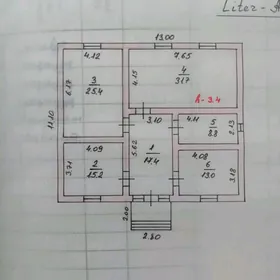 Liter-A
13.00
4.12
7.65
6.17
3
25.4
4.15
4
31.7
h-3.4
11.10
3.10
4.11
5
8.8
2.13
4.09
5.62
1
17.4
4.08
3.71
2
15.2
6
13.0
3.18
2.00
2.80